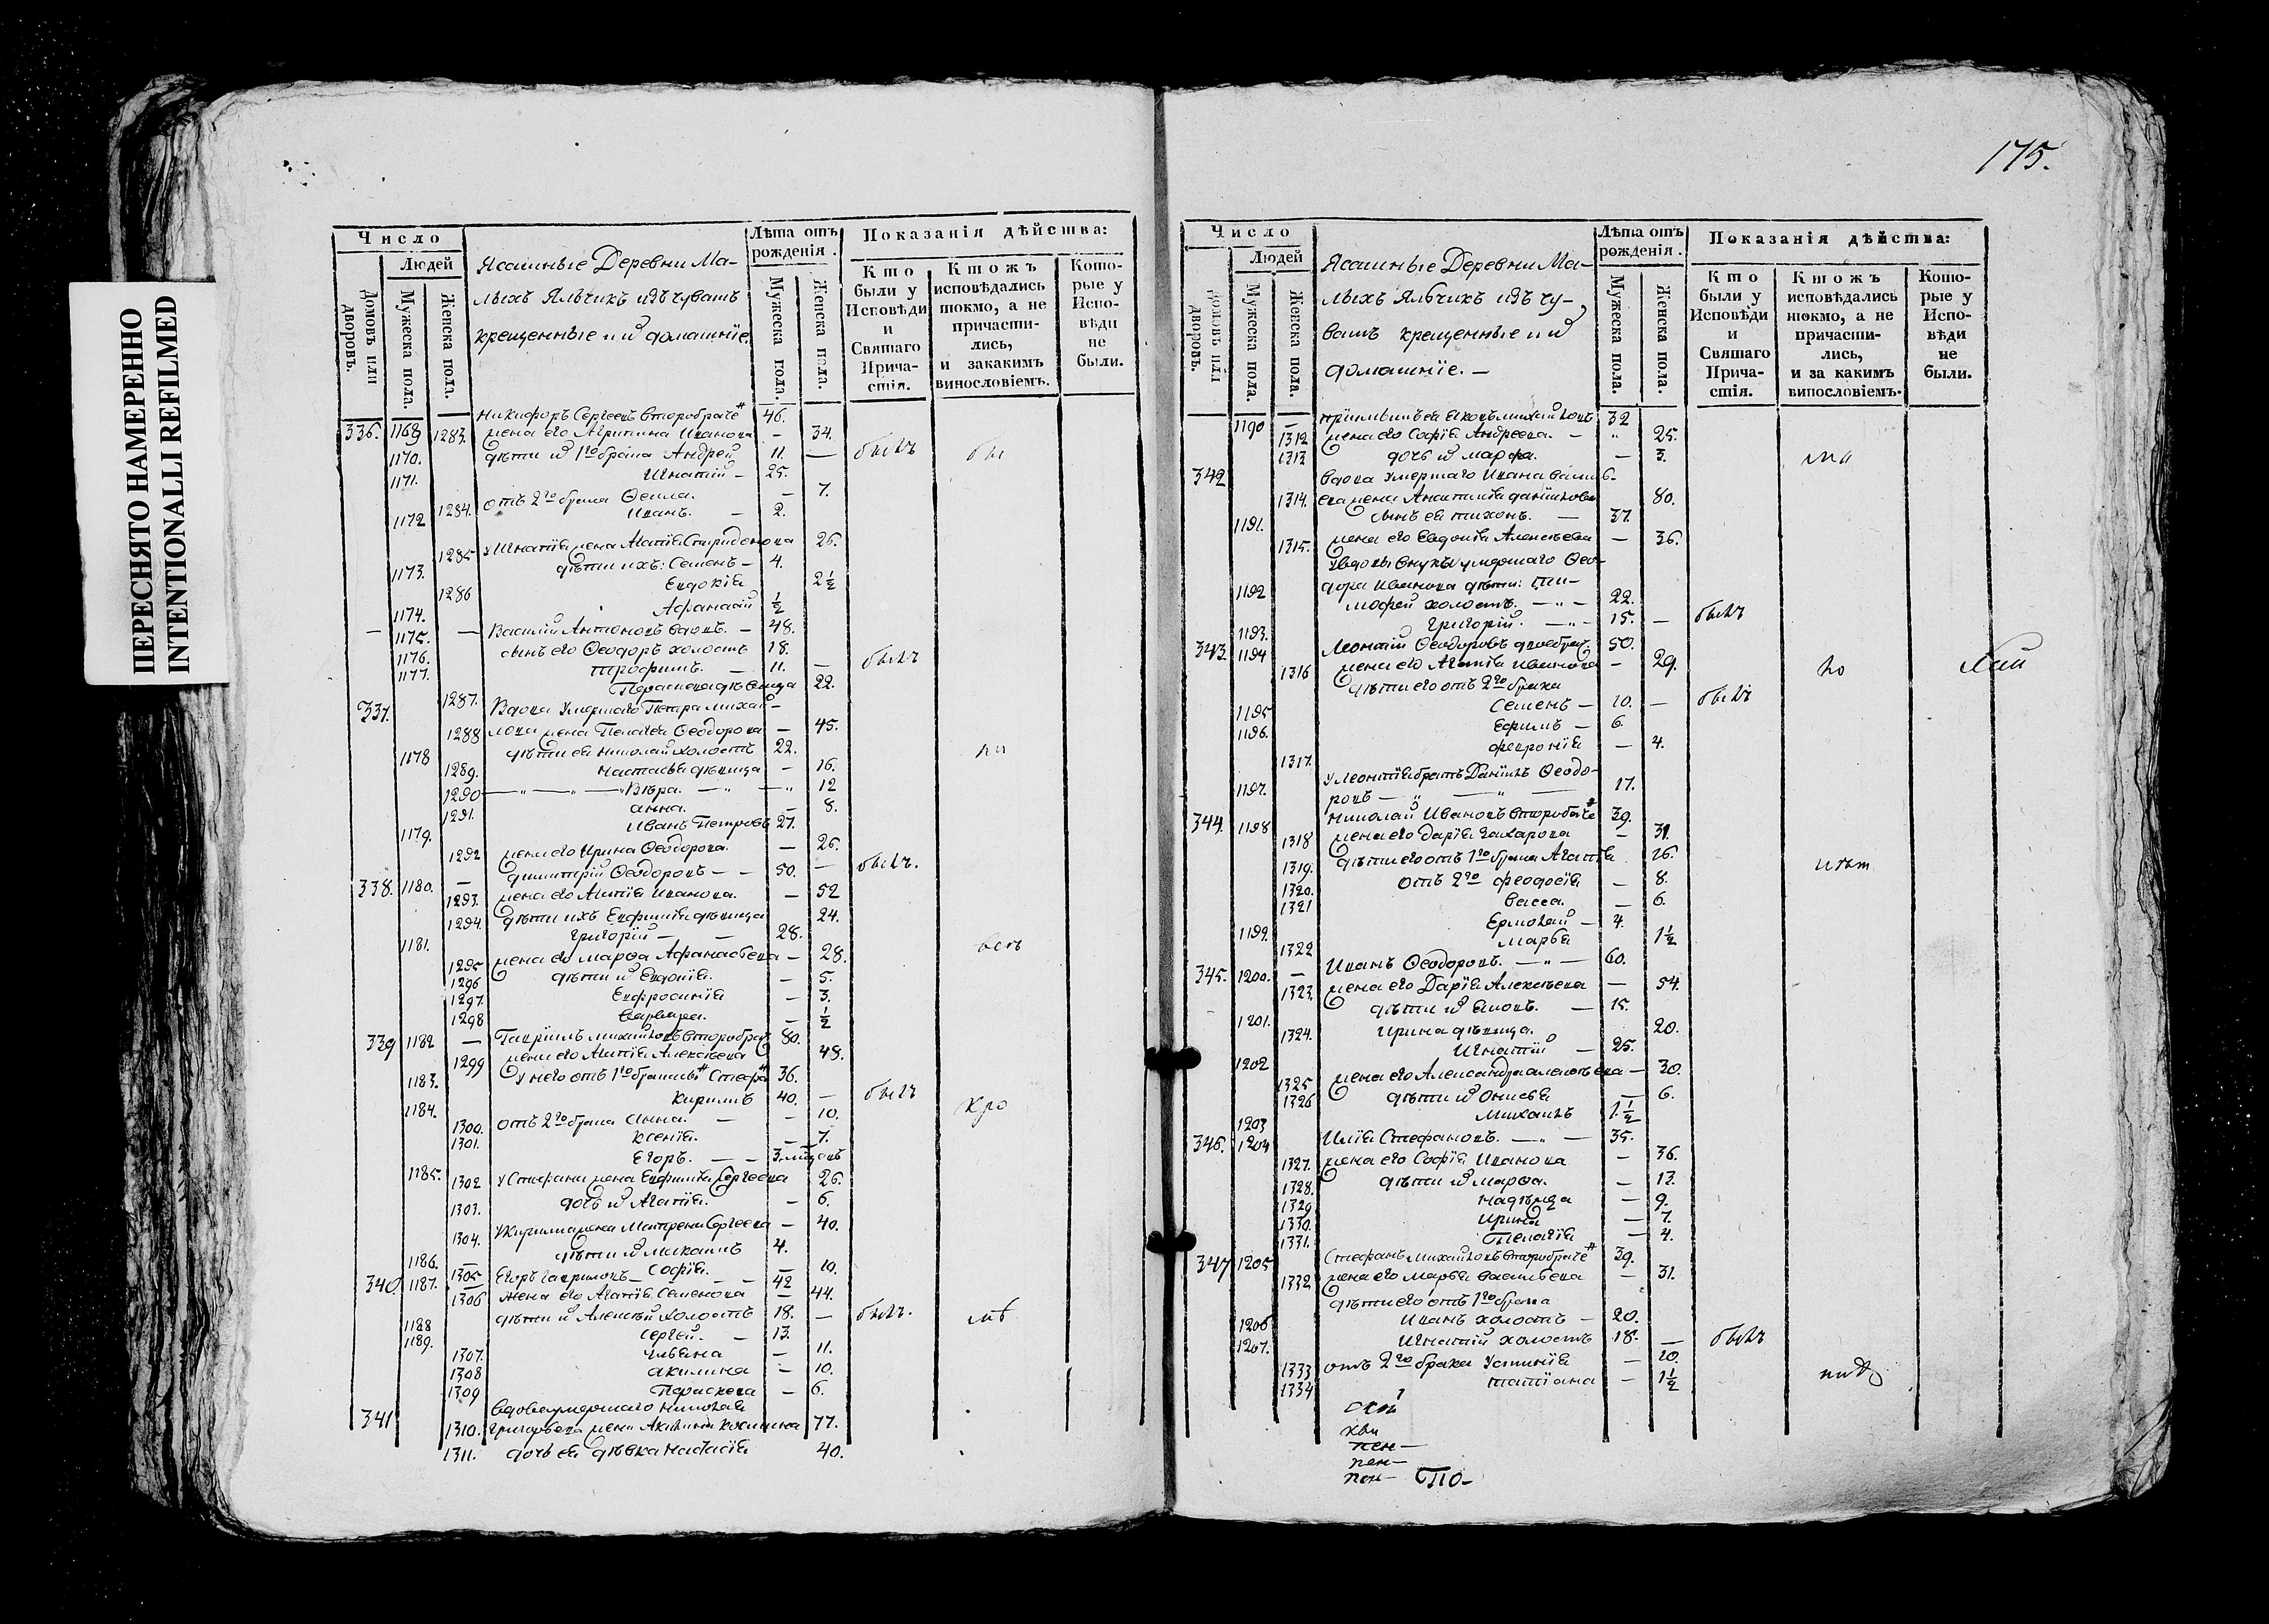 ПЕРЕСНЯТО НАМЕРЕННО
INTENTIONALLI REFILMED
175.
Число
Людей
Домовъ или дворовъ.
Мужеска пола.
Женска пола.
Ясашные Деревни Ма-
лыхъ Яльчикъ изъ чувашъ
крещенные и ихъ домашнїе.
Лѣта отъ рожденія.
Мужеска пола.
Женска пола.
Показанія дѣйства:
Кто были у Исповѣди и Святаго Причастія.
Ктожъ исповѣдались токмо, а не причастились, и закакимъ винословіемъ.
Которые у Исповѣди не были.
Никифоръ Сергеевъ второбраче 46.
336. 1169 1283. жена его Агрипина Иванова — 34.
1170. дѣти их 1го брака Андрей 11. — былъ
1171. Игнатий — 25.
1284. отъ 2го брака Ѳекла. — 7.
1172 Иванъ. — 2.
1285 у Игнатїя жена Агапїя Спиридонова 26.
1173. дѣти ихъ: Семенъ — 4.
1286 Евдокїя 2½
1174. Афанасий ½
— 1175. — Василий Антоновъ вдовъ. — 48.
1176. сынъ его Ѳеодоръ холостъ 18.
1177. трофимъ. — 11. — былъ
1287. Параскева дѣвица 22.
337. Вдова Умершаго Петра михай-
1288 лова жена Пелагея Ѳеодорова — 45.
1178 дѣти ея николай холостъ 22.
1289. настасья дѣвица — 16.
1290 Вѣра. — 12
1291. анна. — 8.
1179. Иванъ Петровъ 27.
1292 жена его Ирина Ѳеодорова. — 26.
338. 1180. — димитрий Ѳеодоровъ — 50. — былъ.
1293. жена его Агапїя Иванова. — 52
1294. дѣти ихъ Евфимїя дѣвица 24.
1181. григорий — 28.
1295 жена его Марѳа Афанасьева — 28.
1296 дѣти их Евдокїя. — 5.
1297. Евфросинїя — 3.
1298 Варвара. — ½
339 1182 — Гавриилъ михайловъ второбрач 80.
1299 жена его Агапїя Алексѣева 48.
1183. у него отъ 1го брака 36.
1184. кирилъ 40. — былъ
1300. отъ 2го брака Анна. — 10.
1301. ксенїя. — 7.
1185. Егоръ. — 3.
1302 у Стефана жена Евфимїя Сергеева 26.
1303. дочь их Агапїя. — 6.
1304. у Кирила жена Матрена Сергеева — 40.
1186. дѣти их Михаилъ 4.
1305 Софїя. — 10.
340 1187. Егоръ гавриловъ — 42
1306 жена его Агапїя Семенова — 44.
1188 дѣти их Алексѣй холостъ 18. — былъ.
1189. Сергей. — 13.
1307. ульяна — 11.
1308 акилина — 10.
1309 Параскева — 6.
341 вдова умершаго николая
1310. григорьева жена Акилина 77.
1311. дочь ея дѣвка настасїя 40.
Число
Людей
Домовъ или дворовъ.
Мужеска пола.
Женска пола.
Ясашные Деревни Ма-
лыхъ Яльчикъ изъ чу-
вашъ крещенные и ихъ
домашнїе. —
Лѣта отъ рожденія.
Мужеска пола.
Женска пола.
Показанія дѣйства:
Кто были у Исповѣди и Святаго Причастія.
Ктожъ исповѣдались токмо, а не причастились, и за какимъ винословіемъ.
Которые у Исповѣди не были.
1190 — 32
1312 жена его Софїя Андреева. — 25.
1313 дочь их марфа. — 3.
342 вдова умершаго Ивана василь-
1314. ева жена даниилова 80.
1191. сынъ ея тихонъ. — 37.
1315. жена его Евдокїя Алексѣева — 36.
у вдовы внуки умершаго Ѳео-
1192 дора Иванова дѣти: Ти-
мофей холостъ. — 22.
1193. григорий. — 15. — былъ
343. 1194 Леонтий Ѳеодоровъ двоебрач 50.
1316 жена его Агапїя иванова — 29. но
дѣти его отъ 2го брака
1195 Семенъ — 10. — былъ
1196. Ефимъ — 6.
1317. февронїя — 4.
у Леонтїя братъ Данїилъ Ѳеодо-
1197. ровъ 17.
344. 1198 николай Ивановъ второбраче 39.
1318 жена его дарїя захарова — 31.
1319. дѣти его отъ 1го брака Агапїя 16.
1320. отъ 2го феодосїя — 8.
1321 васса. — 6.
1199. Ермолай — 4.
1322 Марья 1½
345. 1200. — Иванъ Ѳеодоровъ. — 60.
1323. жена его Дарїя Алексѣева — 54.
1201. дѣти их Яковъ. — 15.
1324. ирина дѣвица. 20.
1202 Игнатий — 25.
1325 жена его Александра алексѣева — 30.
1326 дѣти их — 6.
1203 Михаилъ 1½
346. 1204 Илїя Стефановъ. — 35.
1327. жена его Софїя Иванова — 36.
1328. дѣти их Марѳа. — 13.
1329 надѣжда — 9.
1330. ирина — 7.
1331. Пелагїя — 4.
347 1205 Стефанъ Михайловъ второбраче 39.
1332 жена его Марья васильева — 31.
дѣти его отъ 1го брака
1206 Иванъ холостъ — 20.
1207. Игнатий холостъ 18. — былъ
1333 отъ 2го брака Устинїя — 10.
1334 татїана — 1½